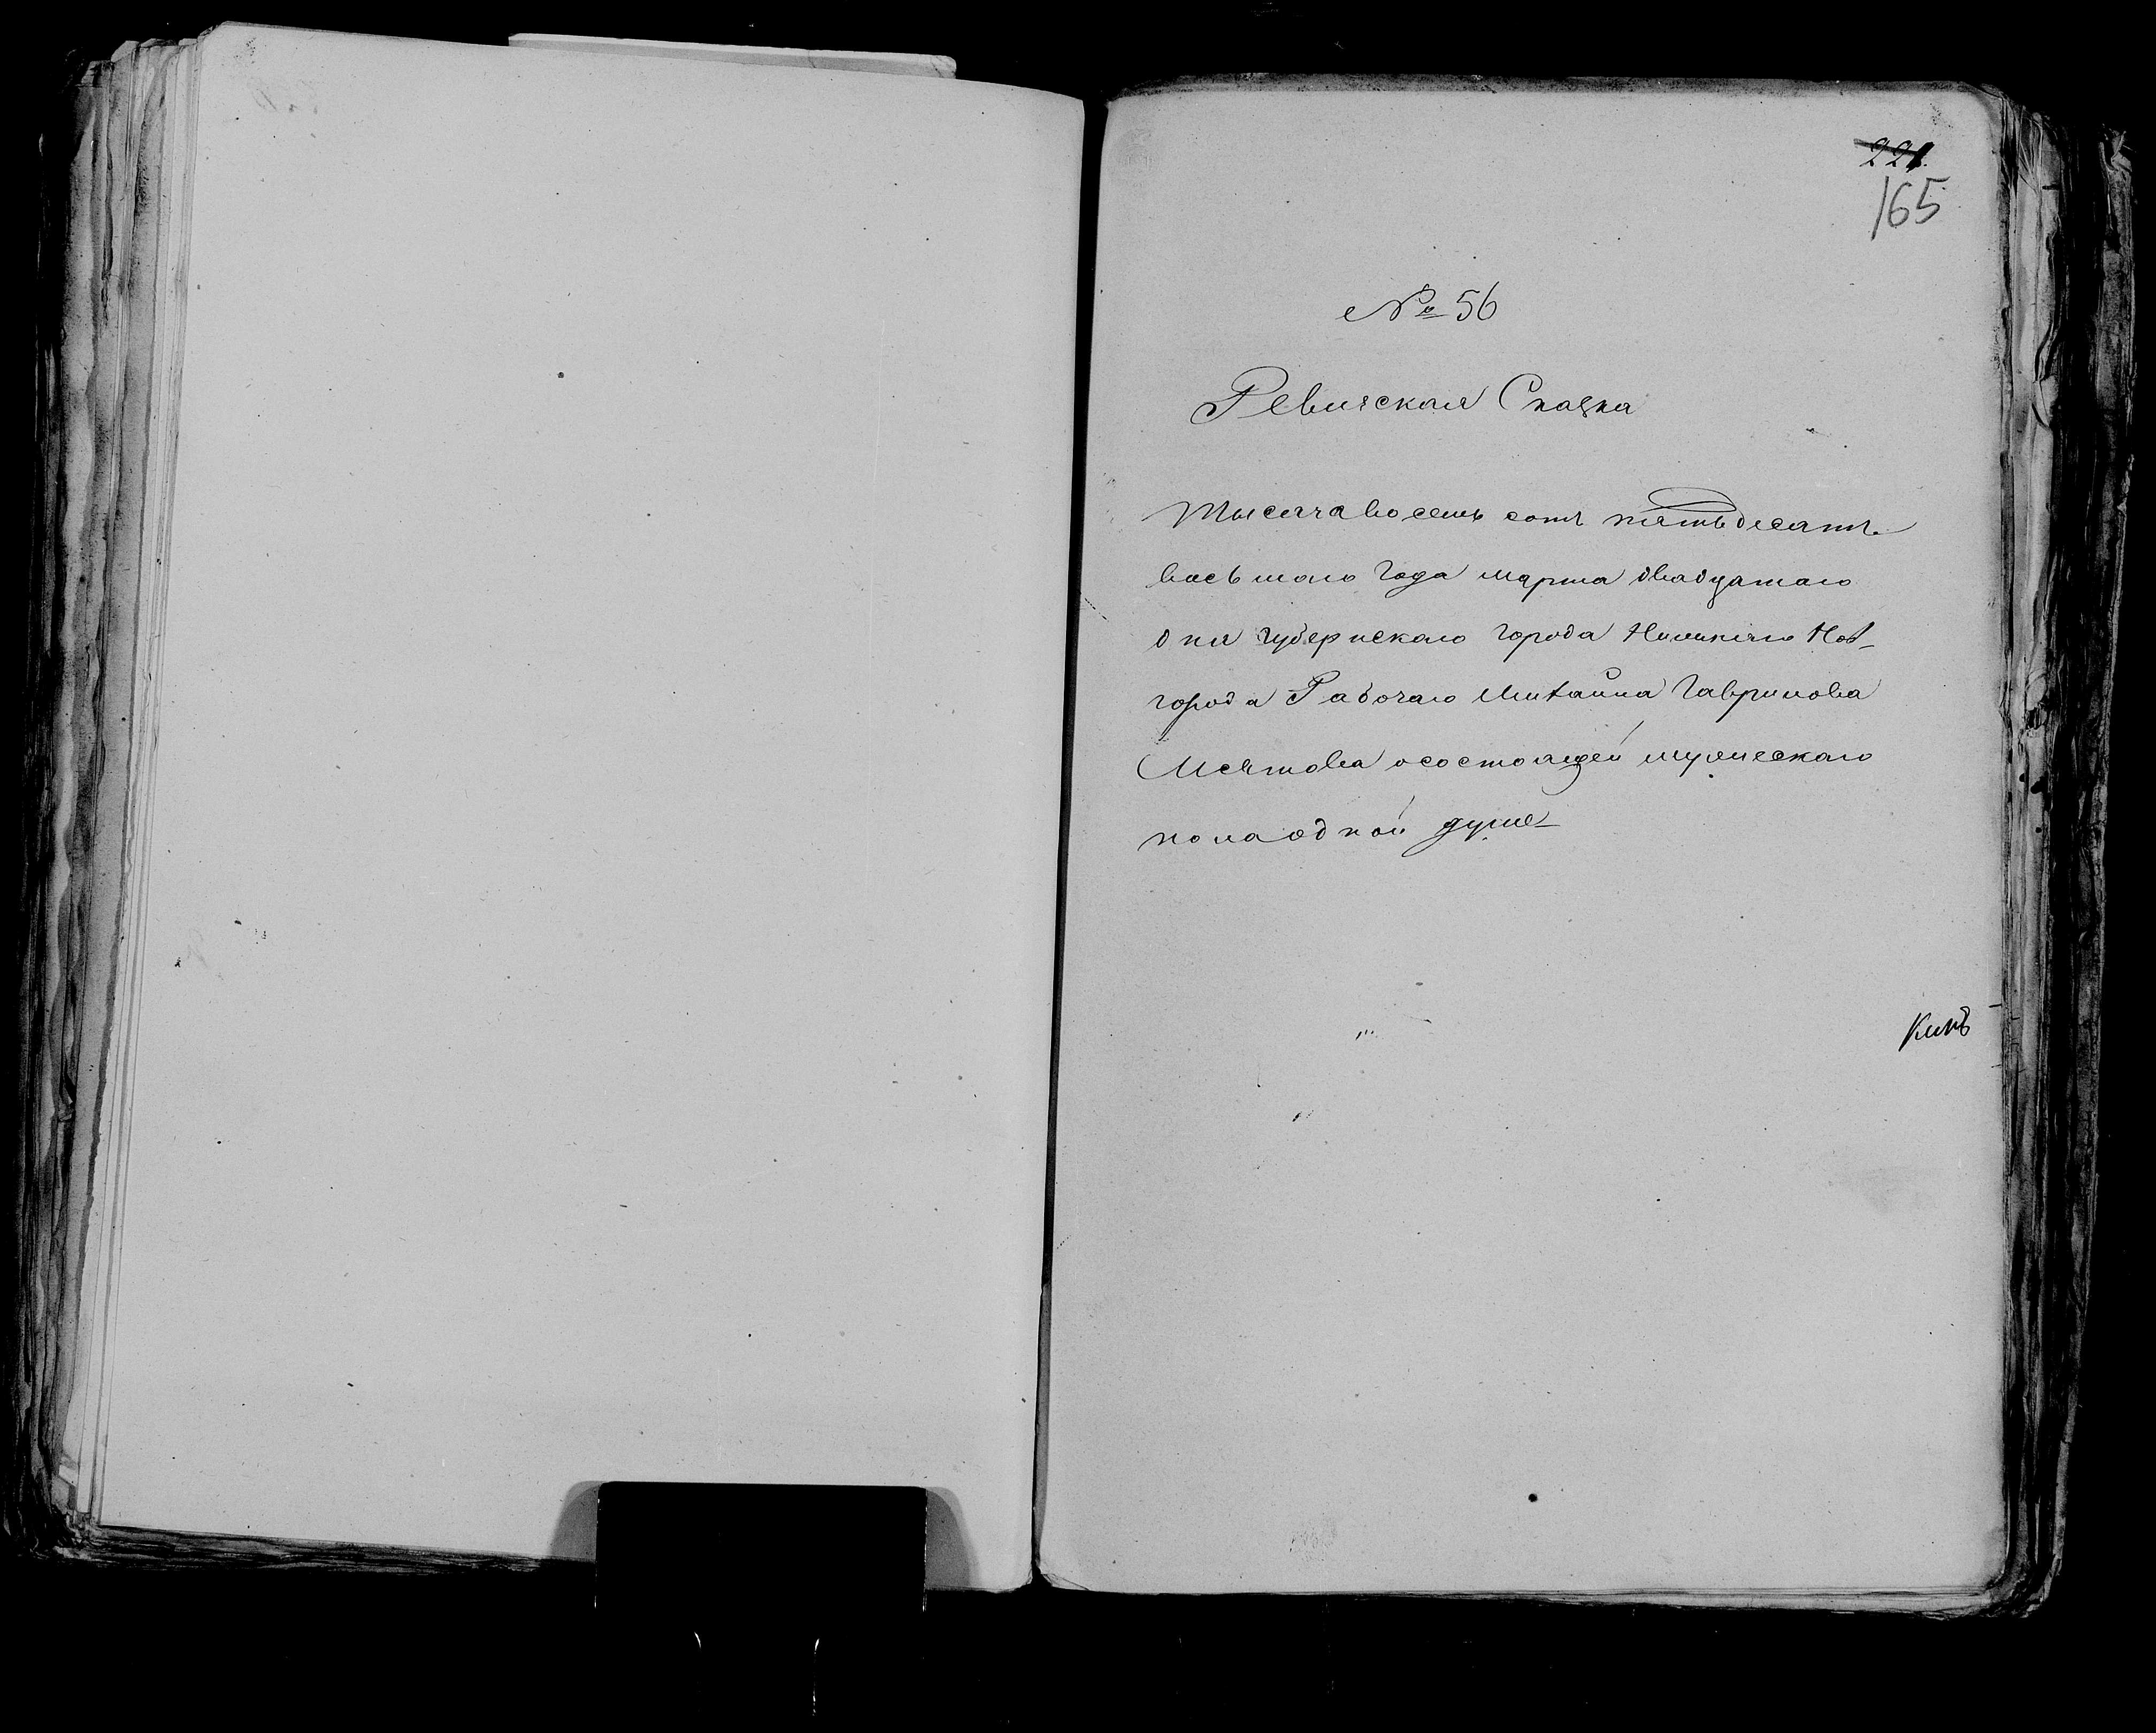 221.
165
№ 56
Ревизская Сказка
Тысяча восемь сотъ пятьдесятъ
восьмаго года марта двадцатаго
дня губернскаго города Нижняго Нов-
города Рабочаго Михайла Гаврилова
о состоящей мужескаго
пола одной душе